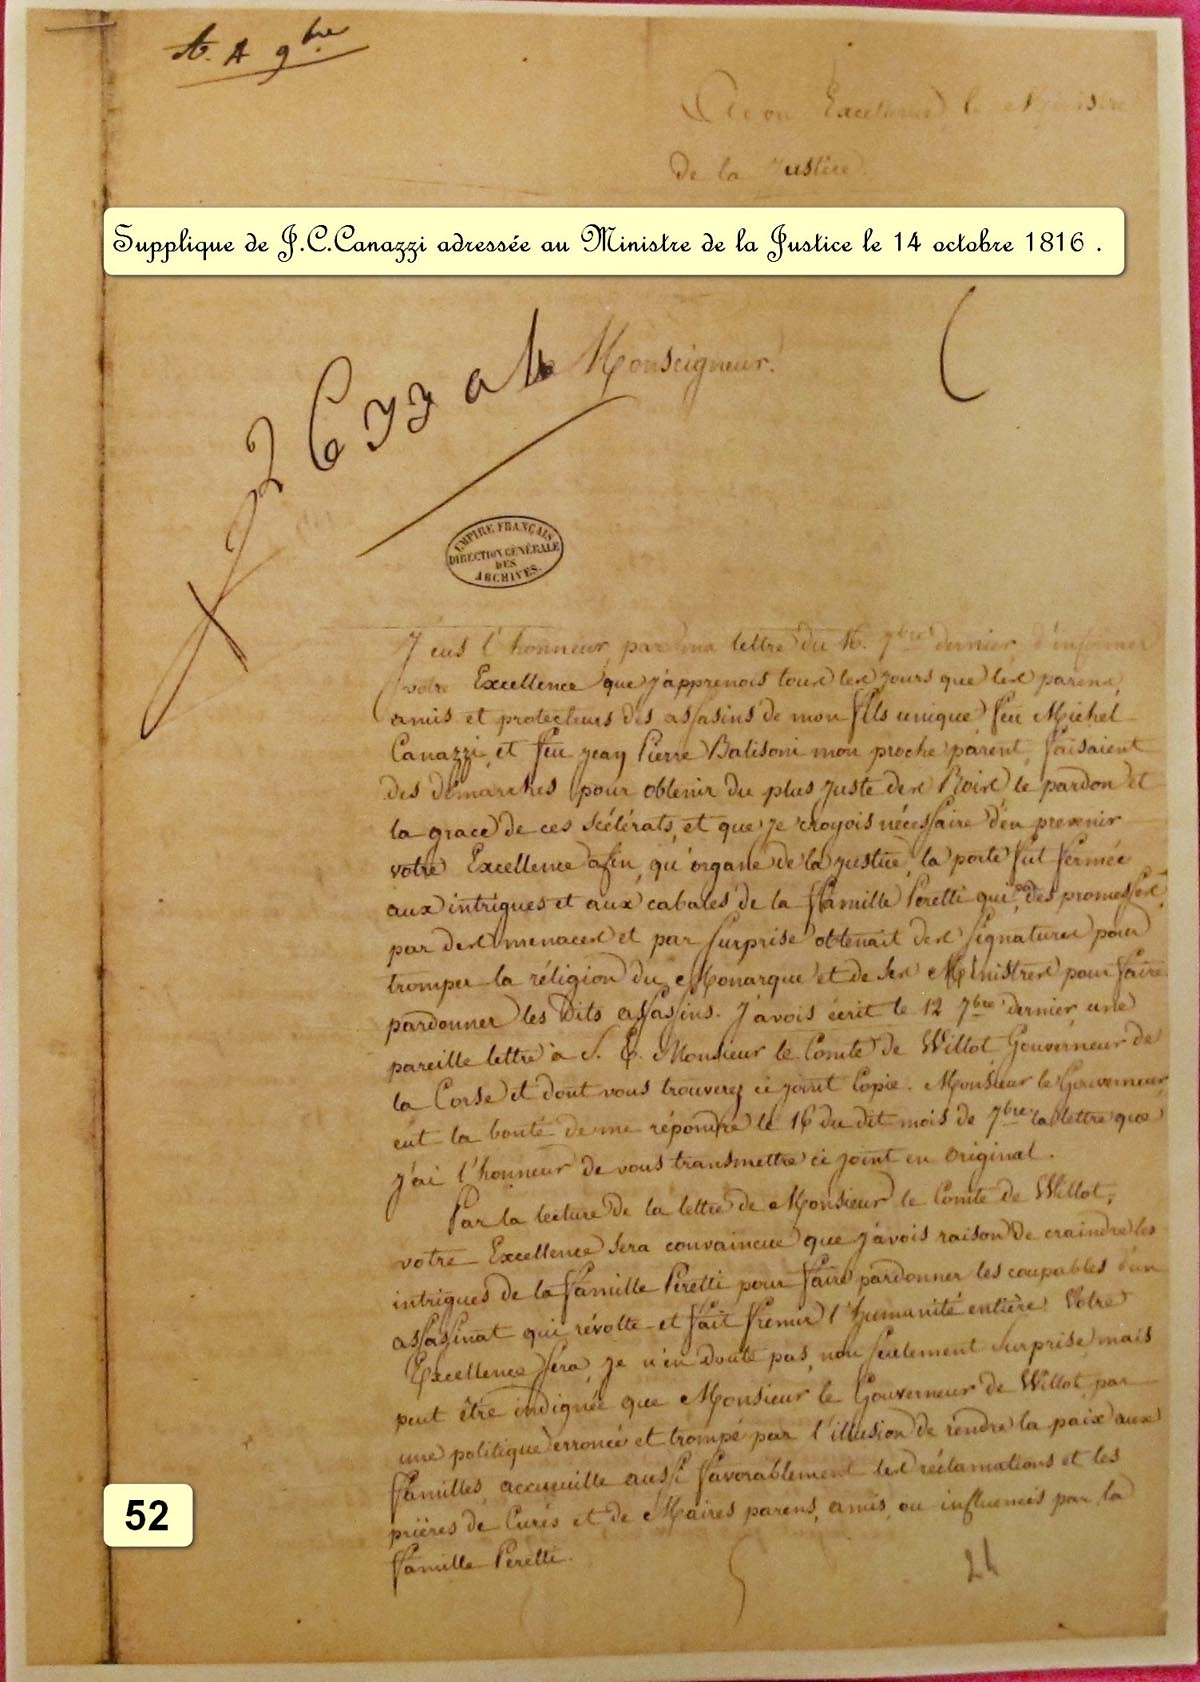 A. A 9bre
A Son Excellence le Ministre
de la Justice.
Supplique de J.C.Canazzi adressée au Ministre de la Justice le 14 octobre 1816 .
Monseigneur!
EMPIRE FRANÇAIS
DIRECTION GÉNÉRALE
DES
ARCHIVES.
J'eus l'honneur, par ma lettre du 16. 7bre dernier, d'informer
votre Excellence que j'apprenois tous les jours que les parens,
amis et protecteurs des assasins de mon fils unique feu Michel
Canazzi, et feu Jean Pierre Balisoni mon proche parent, faisaient
des démarches pour obtenir du plus juste des Rois le pardon et
la grace de ces scélérats, et que je croyois nécessaire d'en prevenir
votre Excellence afin, qu'organe de la justice, la porte fut fermée
aux intrigues et aux cabales de la famille Peretti qui, des promesses,
par des menaces et par surprise obtenait des signatures pour
tromper la réligion du Monarque et de ses Ministres pour faire
pardonner les dits assassins. J'avois écrit le 12 7bre dernier une
pareille lettre à S. E. Monsieur le Comte de Willot Gouverneur de
la Corse et dont vous trouverez ci joint Copie. Monsieur le Gouverneur
eut la bonté de me répondre le 16 du dit mois de 7bre la lettre que
j'ai l'honneur de vous transmettre ci joint en original.
Par la lecture de la lettre de Monsieur le Comte de Willot,
votre Excellence sera convaincue que j'avois raison de craindre les
intrigues de la famille Peretti pour faire pardonner les coupables d'un
assassinat qui révolte et fait fremir l'humanité entière. Votre
Excellence sera, je n'en doute pas, non seulement surprise, mais
peut être indignée que Monsieur le Gouverneur de Willot, par
une politique erronée et trompé par l'illusion de rendre la paix aux
familles, accueuille aussi favorablement les réclamations et les
prières de Curés et de Maires parens, amis, ou influencés par la
famille Peretti.
52
24